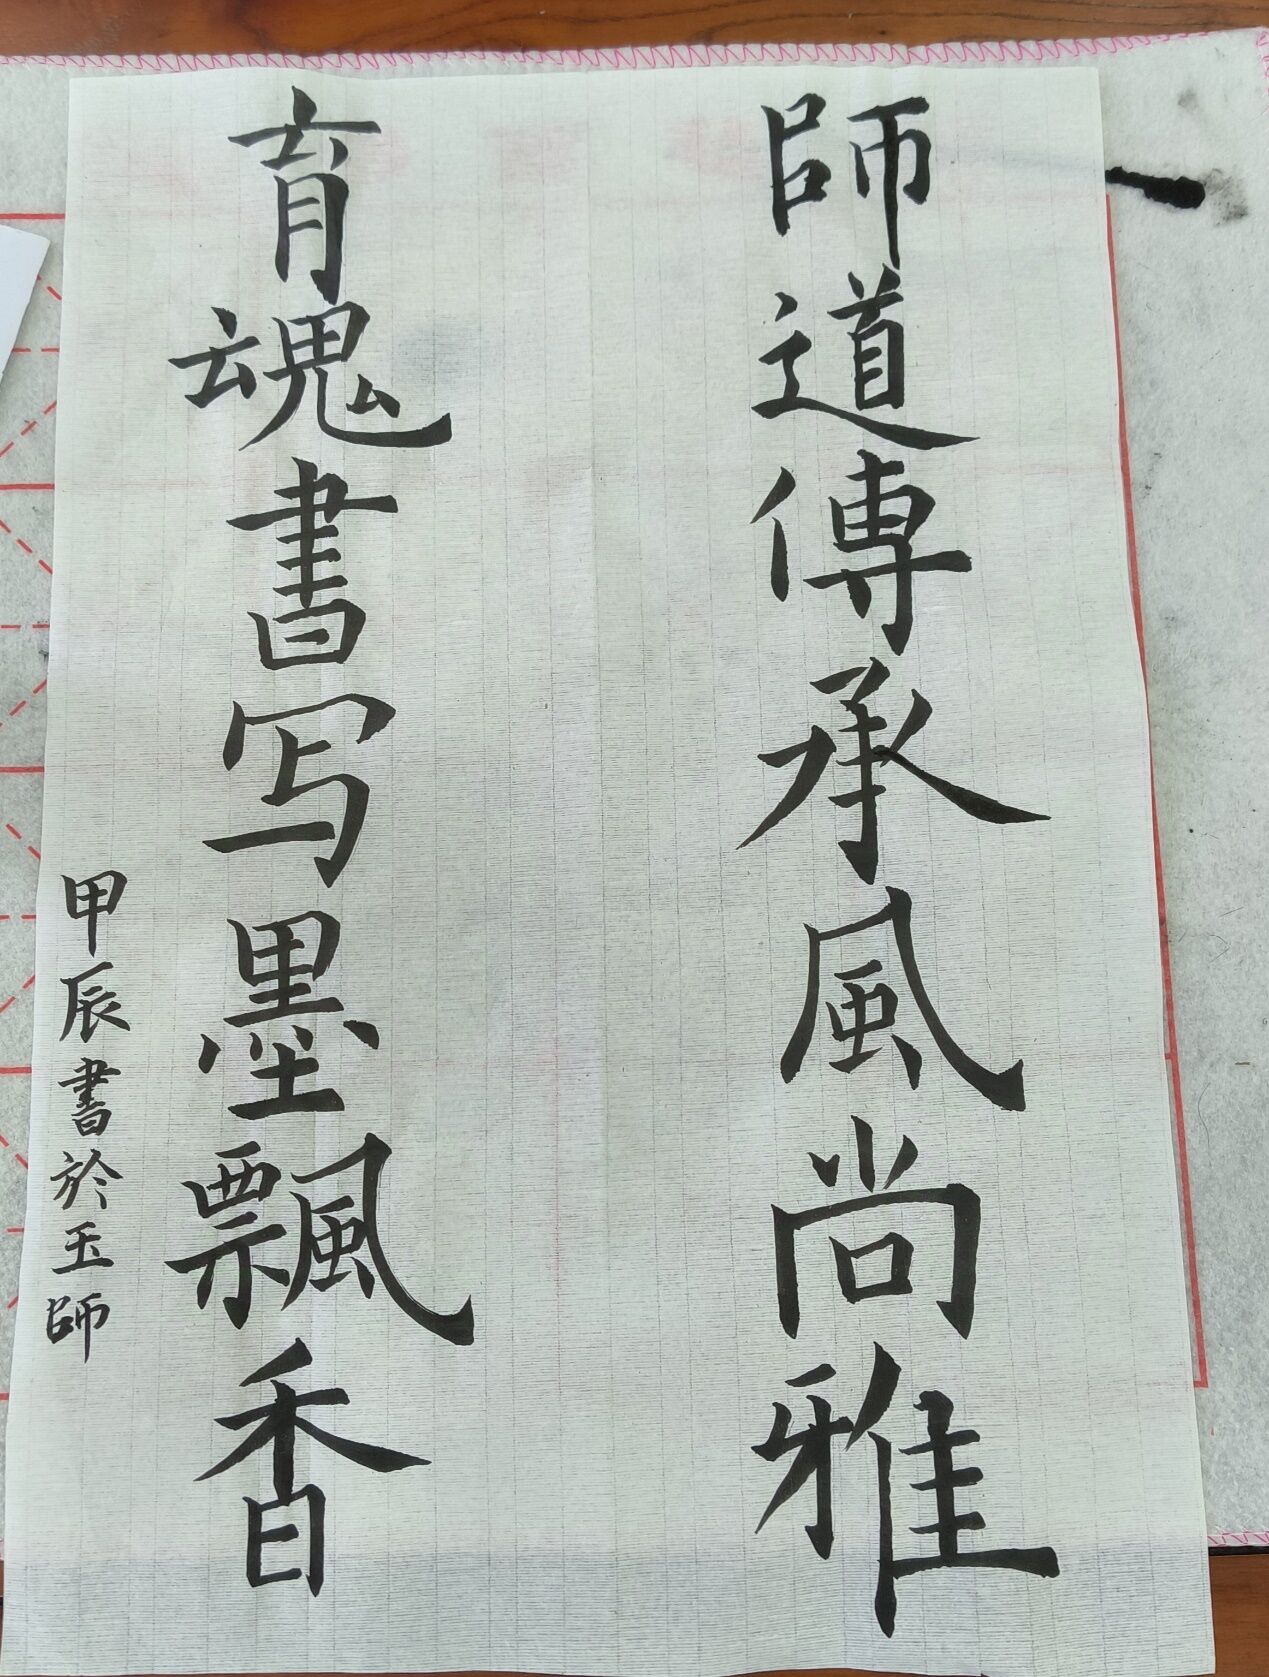 師道傳承風尚雅
育魂書写墨飄香
甲辰書於玉師